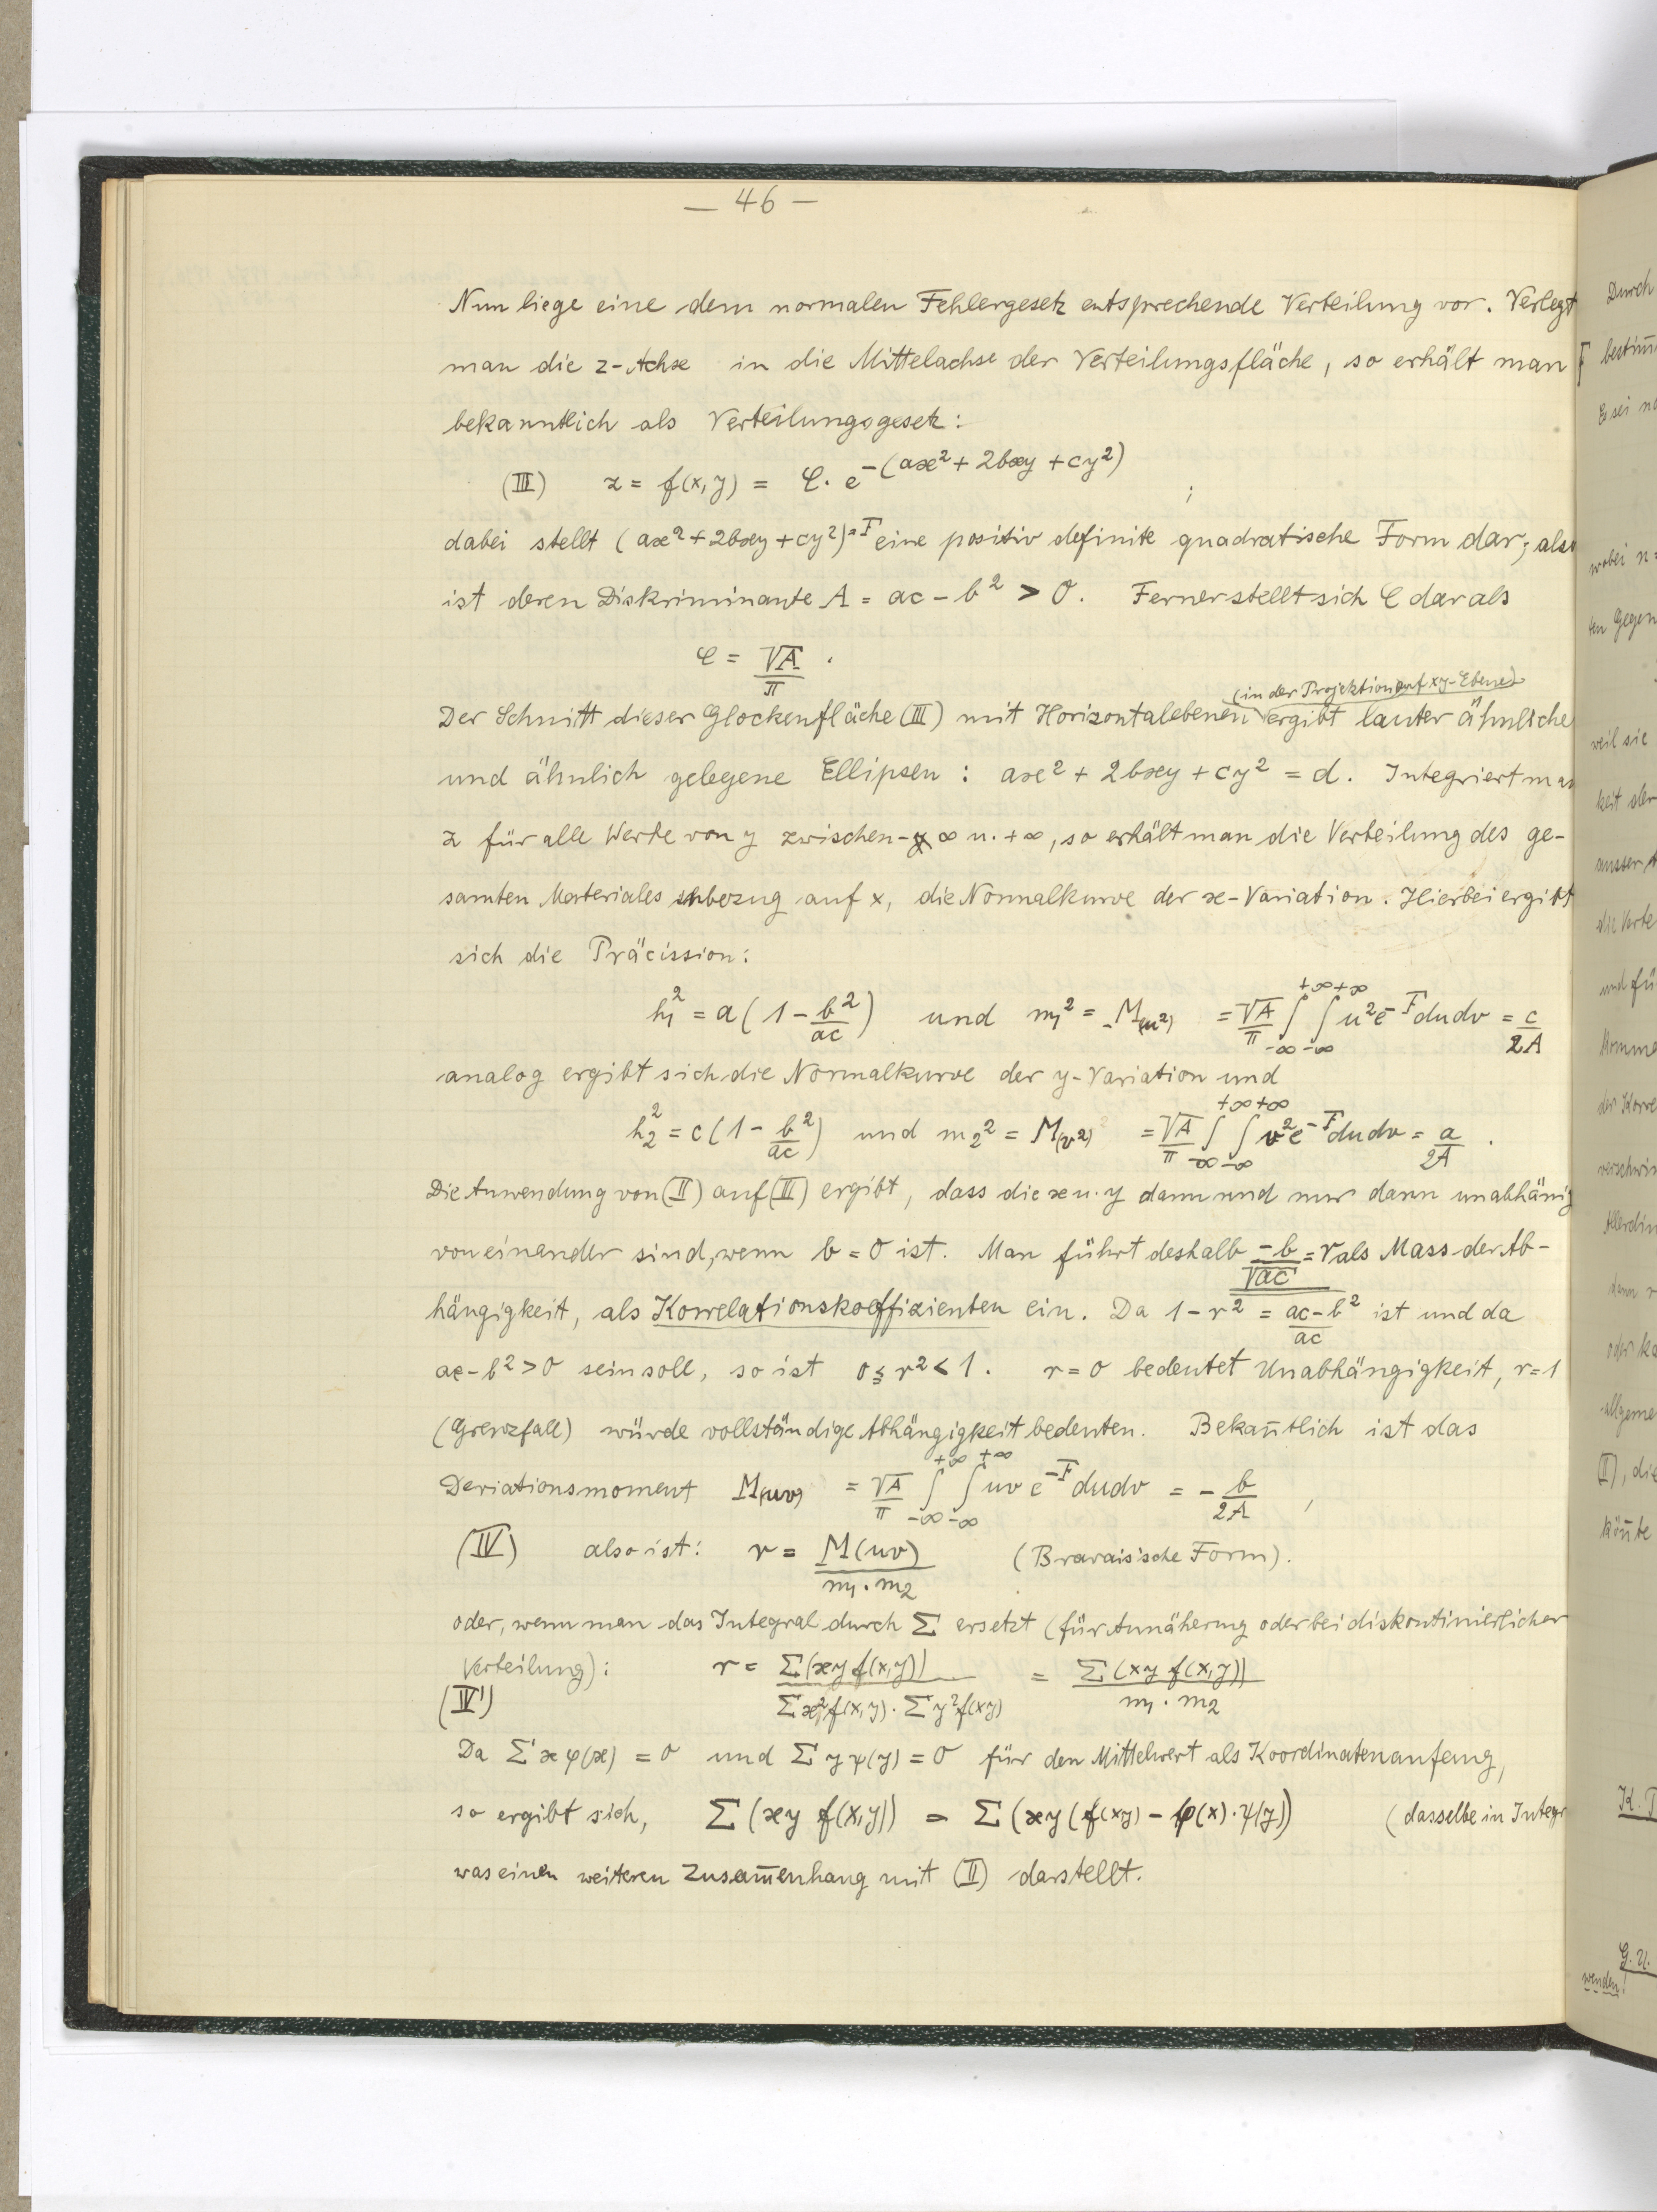 — 46 —
Nun liege eine dem normalen Fehlergesetz entsprechende Verteilung vor. Verlegt
man die z-Achse in die Mittelachse der Verteilungsfläche, so erhält man
bekanntlich als Verteilungsgesetz:
(III) z = f(x,y) = C. e^-(ax²+2bxy+cy²) ;
dabei stellt (ax²+2bxy+cy²)=F eine positiv definite quadratische Form dar; also
ist deren Diskriminante A = ac - b² > 0. Ferner stellt sich C dar als
C = √A/π .
(in der Projektion auf xy-Ebene)
Der Schnitt dieser Glockenfläche (III) mit Horizontalebenen ergibt lauter ähnliche
und ähnlich gelegene Ellipsen : ax² + 2bxy + cy² = d. Integriert man
z für alle Werte von y zwischen - ∞ u. +∞, so erhält man die Verteilung des ge-
samten Materiales inbezug auf x, die Normalkurve der x-Variation. Hierbei ergibt
sich die Präcission:
h₁² = a(1 - b²/ac) und m₁² = M(u²) = √A/π ∫_-∞^+∞ ∫_-∞^+∞ u²e^-F dudv = c/2A
analog ergibt sich die Normalkurve der y-Variation und
h₂² = c(1 - b²/ac) und m₂² = M(v²) = √A/π ∫_-∞^+∞ ∫_-∞^+∞ v²e^-F dudv = a/2A .
Die Anwendung von (II) auf (III) ergibt, dass die x u. y dann und nur dann unabhänig
voneinander sind, wenn b = 0 ist. Man führt deshalb -b/√ac = r als Mass der Ab-
hängigkeit, als Korrelationskoeffizienten ein. Da 1 - r² = ac-b²/ac ist und da
ac-b²>0 sein soll, so ist 0 ≤ r² < 1. r=0 bedeutet Unabhängigkeit, r=1
(Grenzfall) würde vollständige Abhängigkeit bedeuten. Bekan̄tlich ist das
Deviationsmoment M(uv) = √A/π ∫_-∞^+∞ ∫_-∞^+∞ uv e^-F dudv = - b/2A ,
(IV) also ist: r = M(uv)/m₁.m₂ (Bravais'sche Form).
oder, wenn man das Integral durch Σ ersetzt (für Annäherung oder bei diskontinierlicher
Verteilung): r = Σ(xy f(x,y))/Σx²f(x,y). Σy²f(xy) = Σ(xy f(x,y))/m₁.m₂
(IV')
Da Σ x φ(x) = 0 und Σ y ψ(y) = 0 für den Mittelwert als Koordinatenanfang,
so ergibt sich, Σ(xy f(x,y)) = Σ(xy(f(xy) - φ(x).ψ(y)) (dasselbe in Integr
was einen weiteren Zusam̄enhang mit (II) darstellt.
Durch
Es sei
wobei n =
ten Gegen
weil sie
und fü
Allgeme
(I), die
kön̄te
K.
G. U.
wenden!